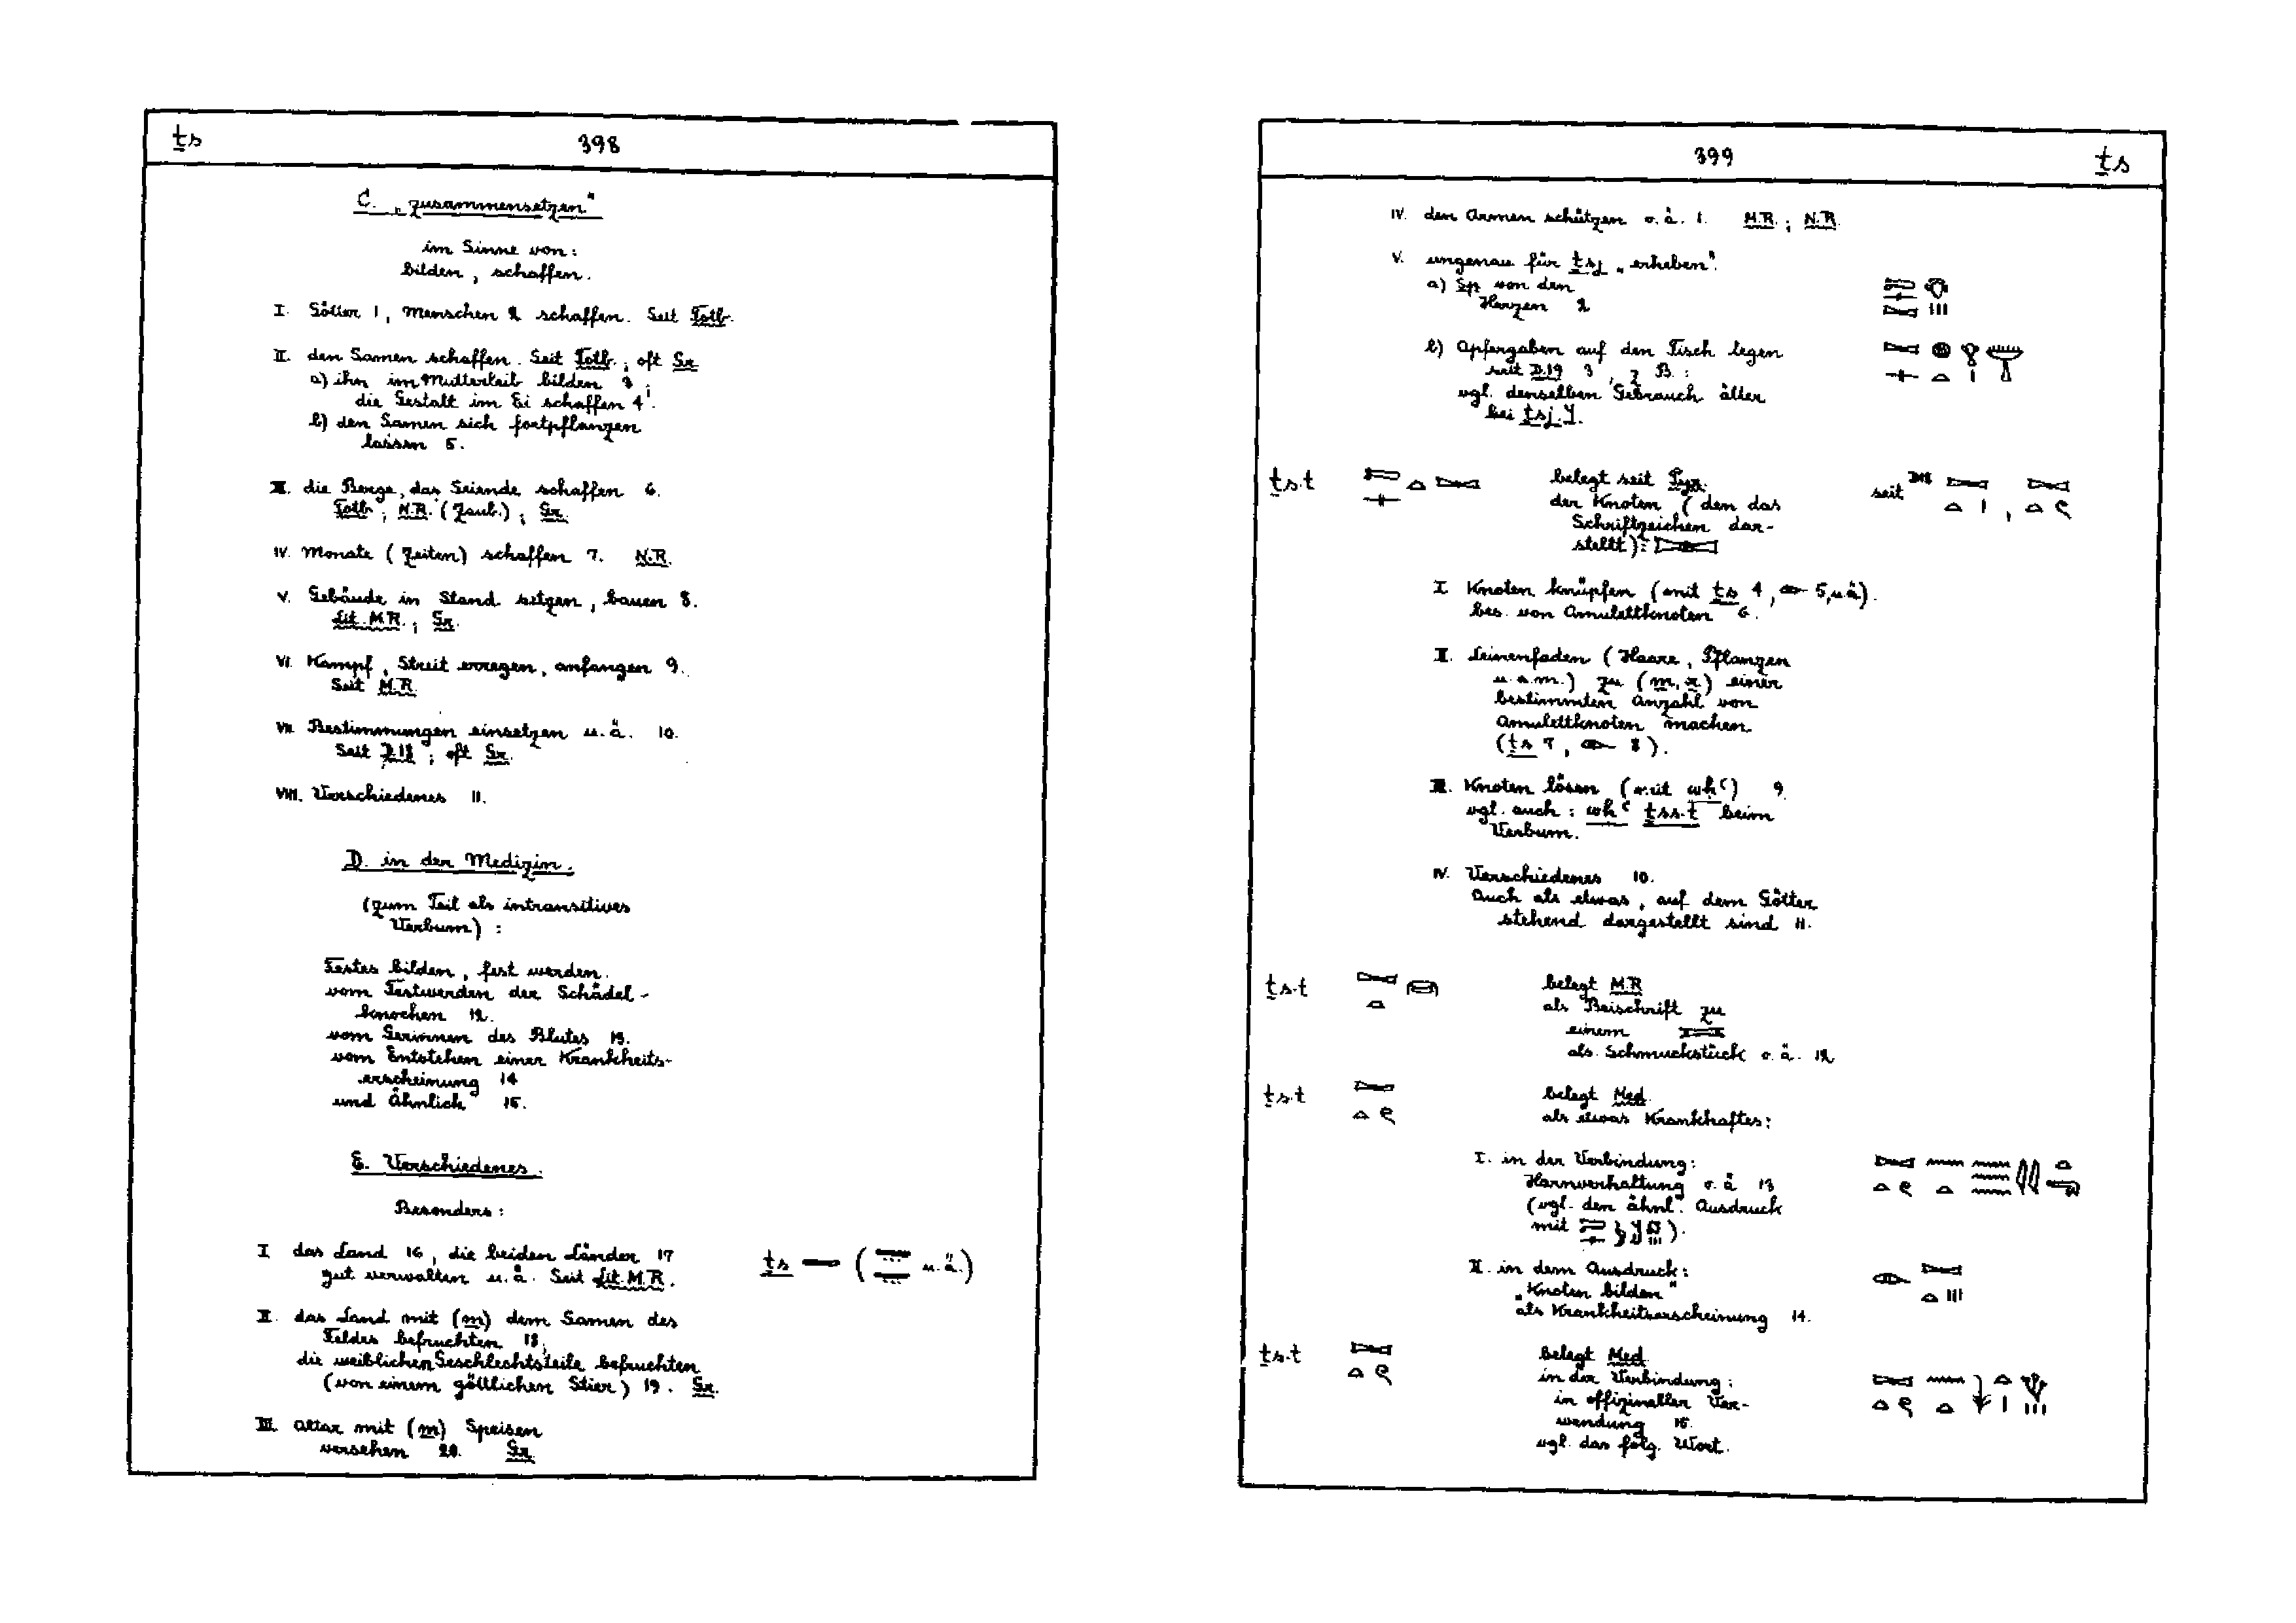 ṯs 398
C. „zusammensetzen"
im Sinne von:
bilden, schaffen.
I. Götter 1, Menschen 2 schaffen. Seit Totb.
II. den Samen schaffen. Seit Totb.; oft Gr.
a) ihn im Mutterleib bilden 3;
die Gestalt im Ei schaffen 4.
b) den Samen sich fortpflanzen
lassen 5.
III. die Berge, das Seiende schaffen 6.
Totb.; N.R. (Zaub.); Gr.
IV. Monate (Zeiten) schaffen 7. N.R.
V. Gebäude in Stand setzen, bauen 8.
Lit. M.R.; Gr.
VI. Kampf, Streit erregen, anfangen 9.
Seit M.R.
VII. Bestimmungen einsetzen u.ä. 10.
Seit D.18; oft Gr.
VIII. Verschiedenes 11.
D. in der Medizin.
(zum Teil als intransitives
Verbum):
Festes bilden, fest werden.
vom Festwerden der Schädel-
knochen 12.
vom Gerinnen des Blutes 13.
vom Entstehen einer Krankheits-
erscheinung 14
und Ähnlich 15.
E. Verschiedenes.
Besonders:
I das Land 16, die beiden Länder 17 ṯs ( u.ä.)
gut verwalten u.ä. Seit Lit. M.R.
II. das Land mit (m) dem Samen des
Feldes befruchten 18;
die weiblichen Geschlechtsteile befruchten
(von einem göttlichen Stier) 19. Gr.
III. Altar mit (m) Speisen
versehen 20. Gr.
399 ṯs
IV. den Armen schützen o.ä. 1. M.R.; N.R.
V. ungenau für ṯsj „erheben".
a) Sp von den
Herzen 2
b) Opfergaben auf den Tisch legen
seit D.19 3, z.B.:
vgl. denselben Gebrauch älter
bei ṯsj.
ṯs.t belegt seit Pyr. seit D18
der Knoten (den das
Schriftzeichen dar-
stellt):
I. Knoten knüpfen (mit ṯs 4, 5, u.ä).
bes. von Amulettknoten 6.
II. Leinenfaden (Haare, Pflanzen
u.a.m.) zu (m, r) einer
bestimmten Anzahl von
Amulettknoten machen.
(ṯs 7, 8).
III. Knoten lösen (mit wḥꜥ) 9.
vgl. auch: wḥꜥ ṯss.t beim
Verbum.
IV. Verschiedenes 10.
Auch als etwas, auf dem Götter
stehend dargestellt sind 11.
ṯs.t belegt M.R
als Beischrift zu
einem
als Schmuckstück o.ä. 12
ṯs.t belegt Med.
als etwas Krankhaftes:
I. in der Verbindung:
Harnverhaltung o.ä 13
(vgl. den ähnl. Ausdruck
mit ).
II. in dem Ausdruck:
„Knoten bilden"
als Krankheitserscheinung 14.
ṯs.t belegt Med.
in der Verbindung:
in offizineller Ver-
wendung 15.
vgl. das folg. Wort.